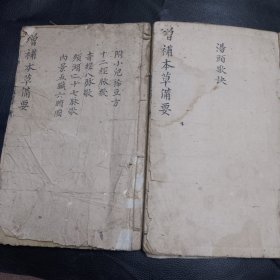 湯頭歌訣
增補本草備要
附小兒痘豆方
十二經脉歌
奇經八脉歌
瀕湖二十七脉歌
內景五臟六腑圖
增補本草備要